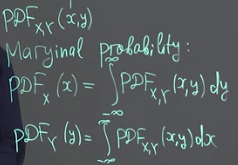 PDF_{X,Y}(x,y)
Marginal probability:
PDF_X(x) = ∫_{-∞}^{∞} PDF_{X,Y}(x,y) dy
PDF_Y(y) = ∫_{-∞}^{∞} PDF_{X,Y}(x,y) dx